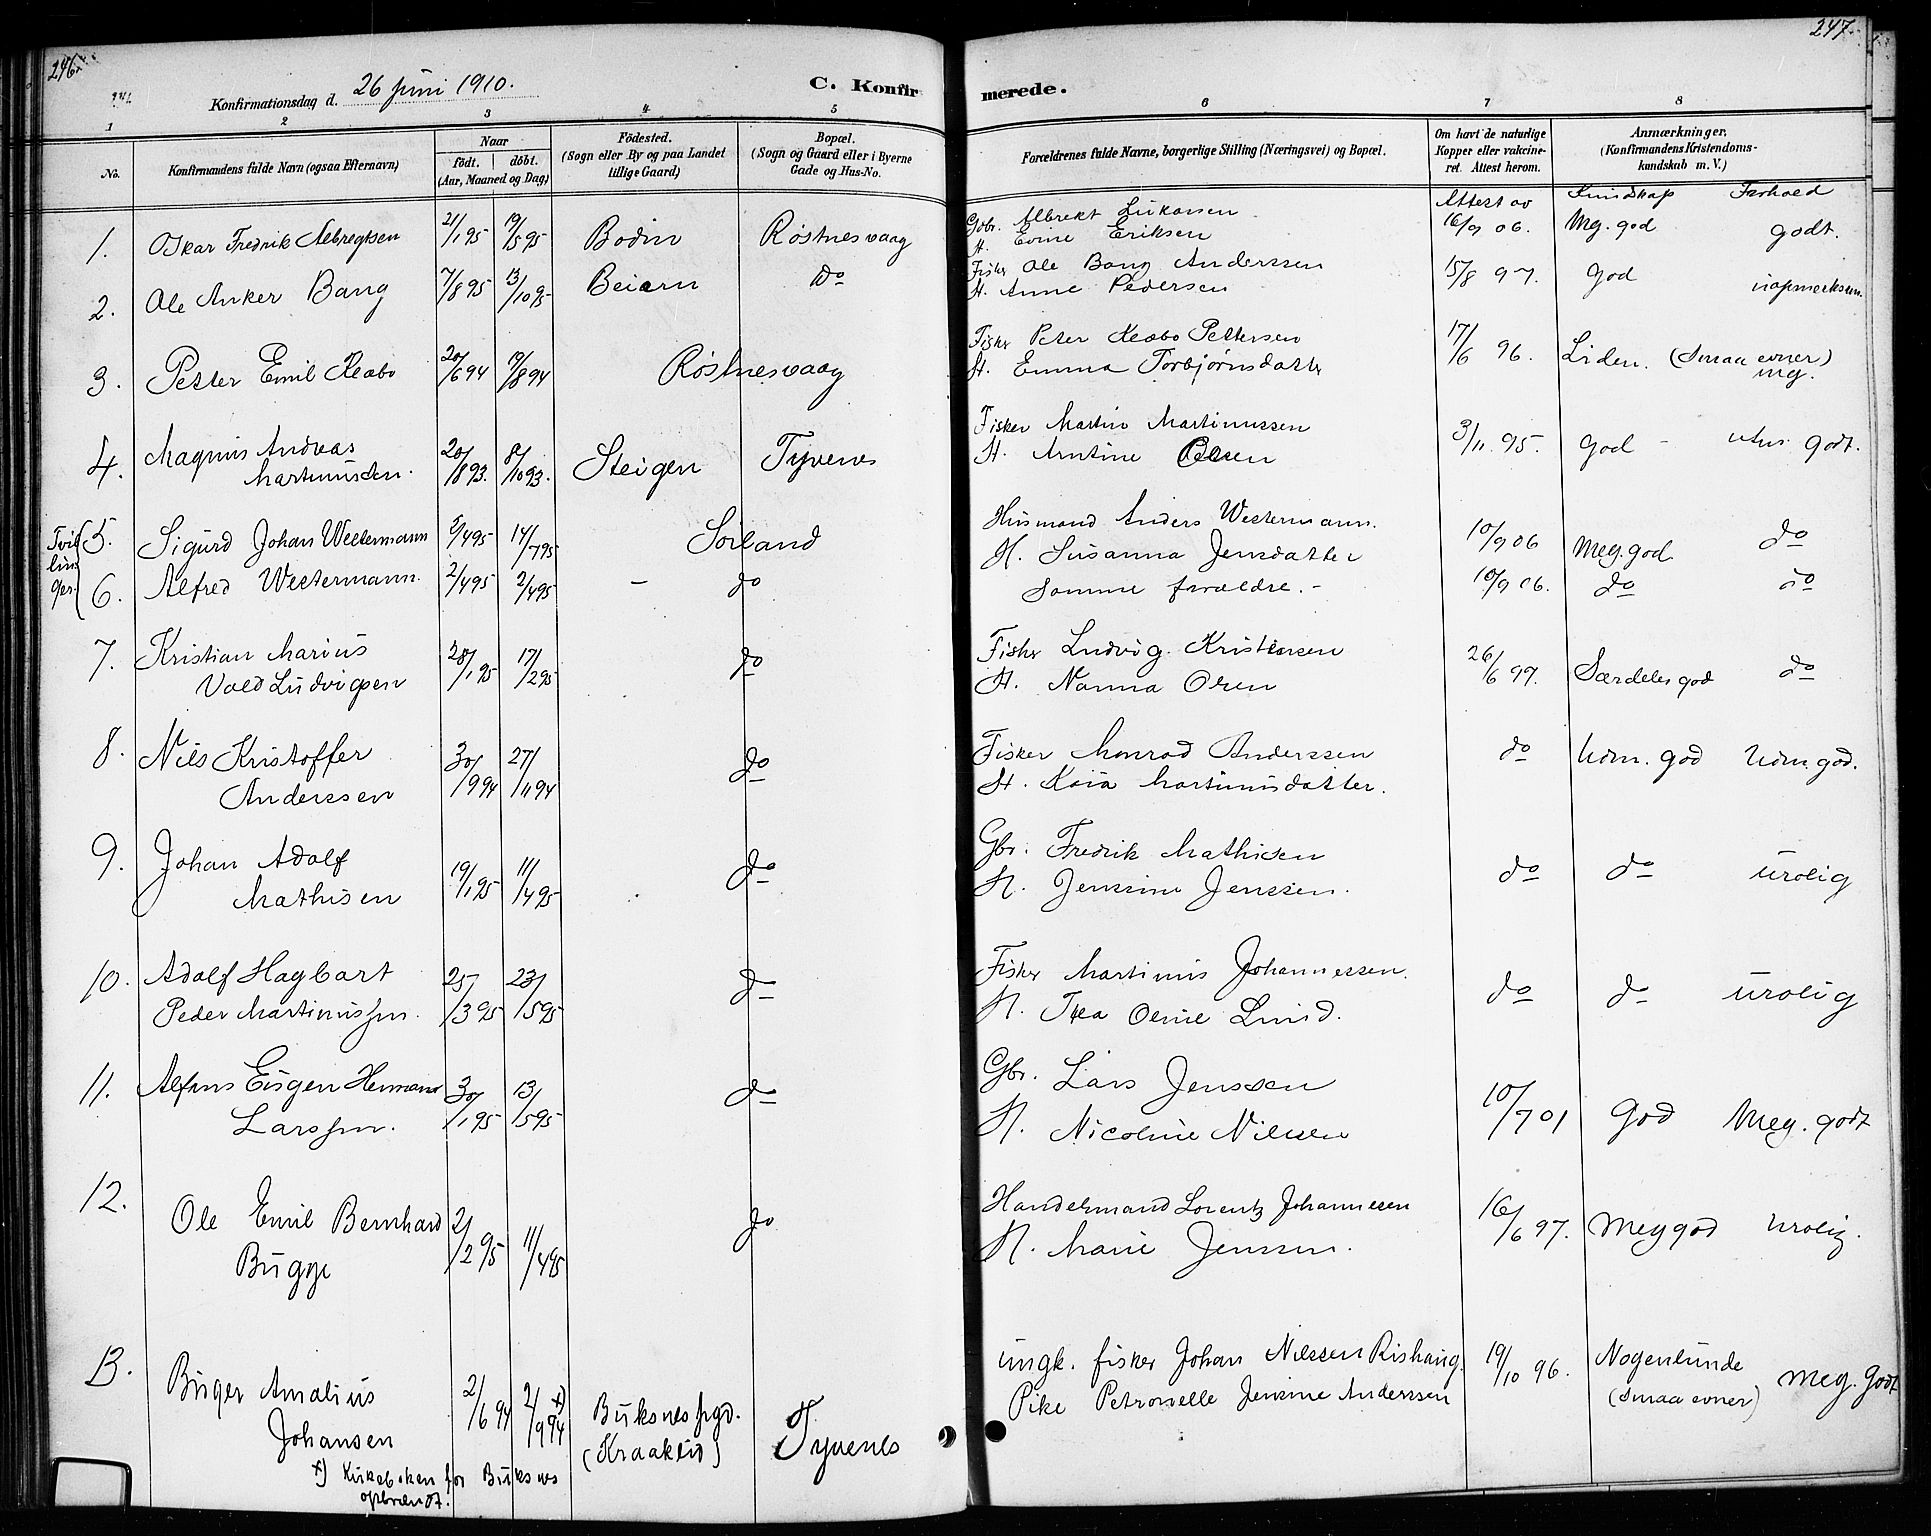 246.
247.
Konfirmationsdag d. 26 juni 1910.
C. Konfirmerede.
1 2 3 4 5 6 7 8
No.
Konfirmandens fulde Navn (ogsaa Efternavn)
Naar
födt. döbt.
(Aar, Maaned og Dag)
Födested.
(Sogn eller By og paa Landet
tillige Gaard)
Bopæl.
(Sogn og Gaard eller i Byerne
Gade og Hus-No.
Forældrenes fulde Navne, borgerlige Stilling (Næringsvei) og Bopæl.
Om havt de naturlige
Kopper eller vakcine-
ret. Attest herom.
Anmærkninger.
(Konfirmandens Kristendoms-
kundskab m. V.)
Attest av Kundskap Forhold
1. Oskar Fredrik Albregtsen 21/1 95 19/5 95 Bodin Røstnesvaag Gbr. Albrekt Lukassen 16/9 06. Meg. god godt.
H. Evine Eriksen
2. Ole Anker Bang 7/8 95 13/10 95 Beiarn do Fisker Ole Bang Anderssen 15/8 97. god uopmerksom.
H. Anne Pedersen
3. Petter Emil Kleabo 20/6 94 19/8 94 Røstnesvaag Fisker Peter Kleabo Pettersen 17/6 96. Liden. (Smaa evner) meg.
H. Emma Torbjørnsdatter
4. Magnus Andreas 20/8 93. 8/10 93. Steigen Tyvenes Fisker Martin Martinussen 3/11 95. god - godt.
Martinussen. H. Arntine Olsen
Tvil
lin
ger.
5. Sigurd Johan Westermann 2/4 95 14/7 95 Sørland Husmand Anders Westermann. 10/9 06 Meg. god do
H. Susanna Jensdatter
6. Alfred Westermann. 2/4 95 2/4 95 - do Samme forældre. - 10/9 06. do do
7. Kristian Marius 28/1 95 17/2 95 do Fisker Ludvig Kristensen 26/6 97. Særdeles god do
Vold Ludvigsen H. Nanna Olsen
8. Nils Kristoffer 30/9 94 27/11 94 do Fisker Monrad Anderssen do Udm. god Udm. god.
Anderssen H. Kaia Martinusdatter.
9. Johan Adolf 19/1 95 11/4 95 do Gbr. Fredrik Mathisen do do urolig
Mathisen H. Jensine Jenssen.
10. Adolf Hagbart 25/3 95 23/5 95 do Fisker Martinus Johannessen. do do urolig
Peder Martinussen. H. Thea Oline Lund.
11. Alfons Eugen Hermann 30/1 95 13/5 95 do Gbr. Lars Jenssen 10/7 01 God Meg. godt
Larssen. H. Nicoline Nilssen
12. Ole Emil Bernhard 2/2 95 11/4 95 do Handelsmand Lorentz Johannesen 16/6 97. Meg god urolig.
Bugge H. Marie Jenssen.
13. Birger Amalius 2/6 94 2/9 94 x) Buksnes prgd. Tyvenes ungk. fisker Johan Nilssen Rishaug. 19/10 96. Nogenlunde Meg. Godt
Johansen (Kraaklid) Pike Petronelle Jensine Anderssen (Smaa evner)
x) Kirkeboken for Buksnes
opbrændt.